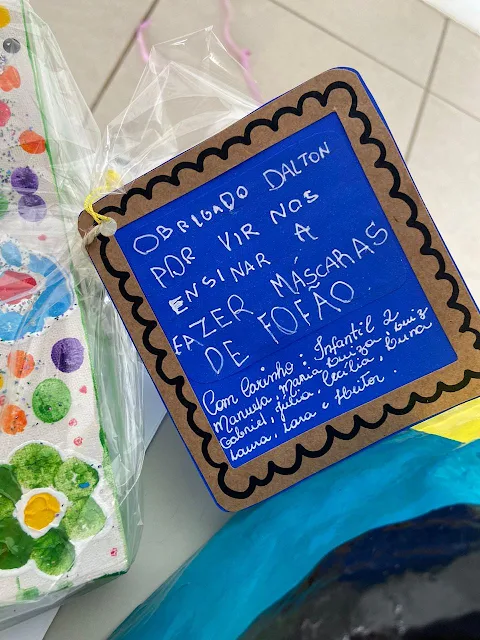 OBRIGADO DALTON
POR VIR NOS
ENSINAR A
FAZER MÁSCARAS
DE FOFÃO.
Com Carinho: Infantil 2
Manuela, Maria Luiza, Luiz
Gabriel, Júlia, Cecília, Luna
Laura, Lara e Heitor.